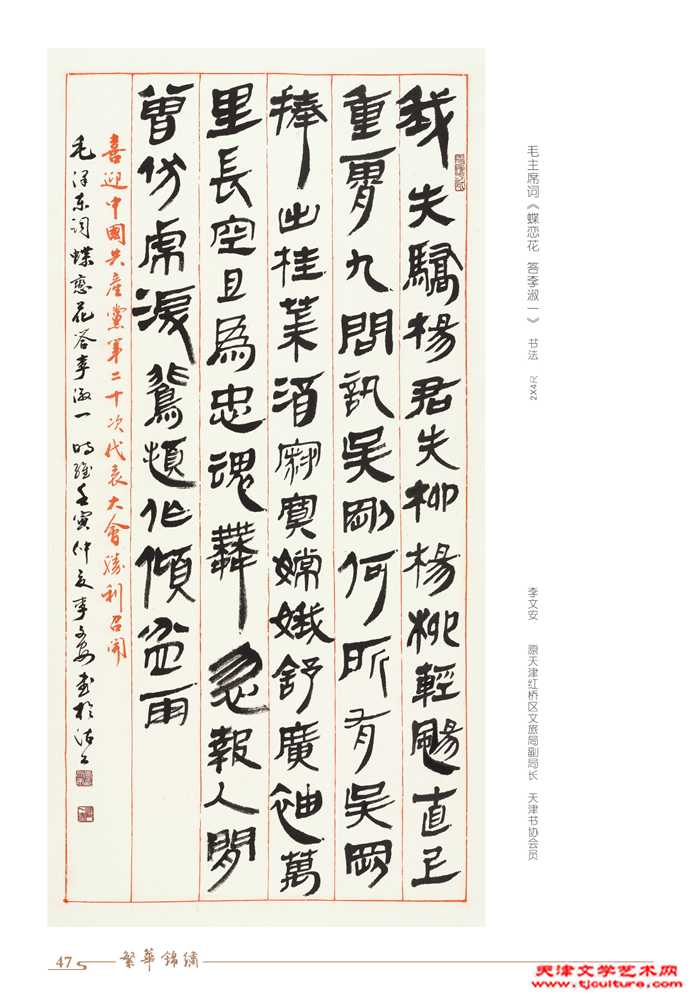 毛主席词《蝶恋花 答李淑一》 书法 2X4尺
李文安 原天津红桥区文旅局副局长 天津书协会员
我失驕楊君失柳楊柳輕颺直上
重霄九問訊吳剛何所有吳剛
捧出桂花酒寂寞嫦娥舒廣袖萬
里長空且為忠魂舞忽報人間
曾伏虎淚飛頓作傾盆雨
喜迎中國共產黨第二十次代表大會勝利召開
毛泽东词蝶恋花答李淑一 時維壬寅仲夏李文安書於沽上
47 繁華錦繡
天津文学艺术网
www.tjculture.com